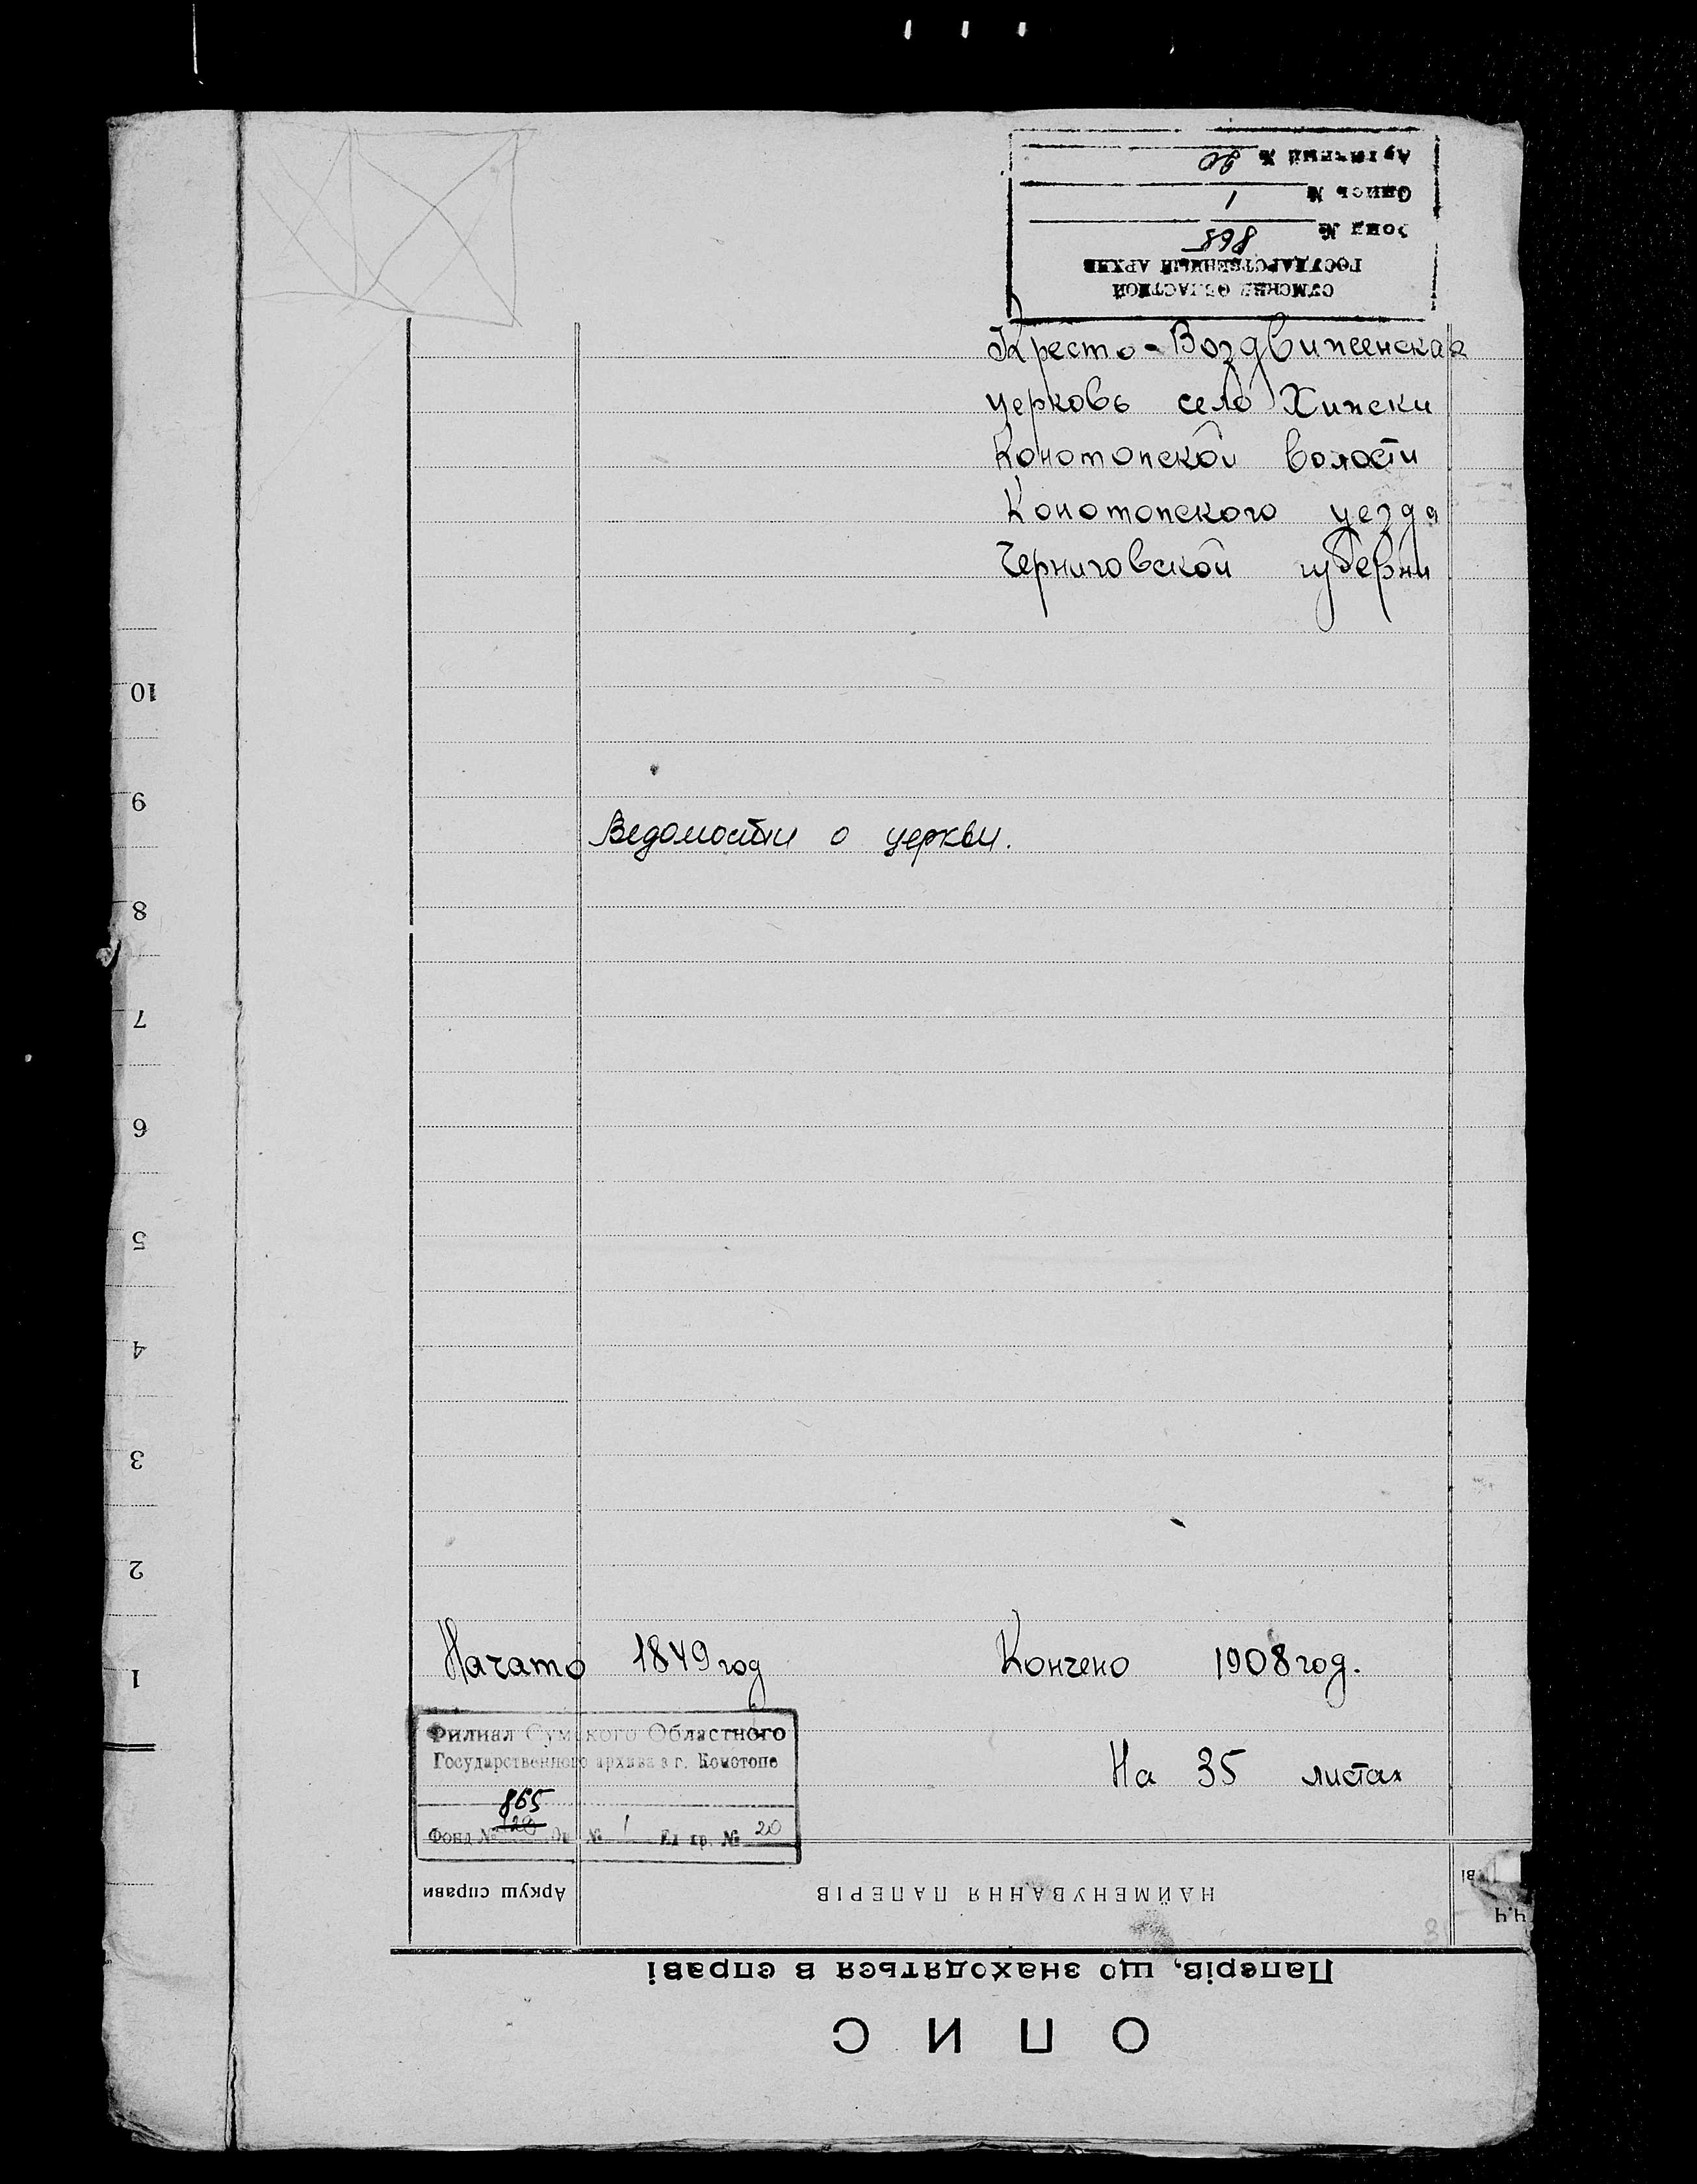 СУМСКИЙ ОБЛАСТНОЙ
ГОСУДАРСТВЕННЫЙ АРХИВ
Фонд № 868
Опись № 1
№ 20
Кресто-Воздвиженская
церковь село Хижки
Конотопской волости
Конотопского уезда
Черниговской губерни
Ведомости о церкви.
Начато 1849 год Кончено 1908 год.
На 35 листах
Филиал Сумского Областного
Государственного архива в г. Конотопе
865
Фонд № 128 Оп № 1 Ед хр. № 20
ОПИС
Паперів, що знаходяться в справі
Ч.Ч
НАЙМЕНУВАННЯ ПАПЕРІВ
Аркуш справи
1
2
3
4
5
6
7
8
9
10